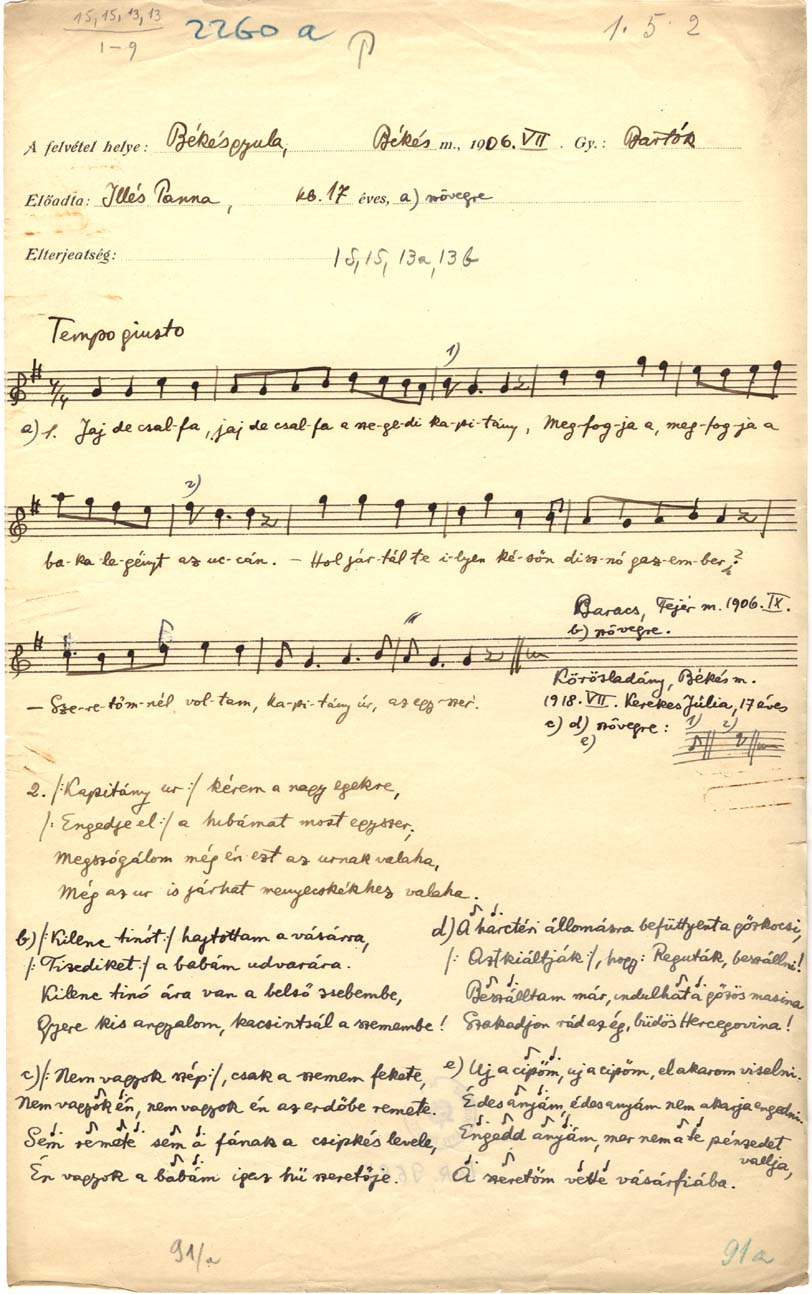 15, 15, 13, 13
1-9
2260 a
1. 5 2
A felvétel helye: Békésgyula, Békés m., 1906. VII. Gy.: Bartók
Előadta: Illés Panna, kb. 17 éves, a) szövegre
Elterjeatség: 15, 15, 13a, 13b
Tempo giusto
1)
a) 1. Jaj de csal-fa, jaj de csal-fa a sze-ge-di ka-pi-tány, Meg-fog-ja a, meg-fog-ja a
2)
ba-ka le-gényt az uc-cán. – Hol jár-tál te i-lyen ké-sőn disz-nó gaz-em-ber?
Baracs, Fejér m. 1906. IX.
b) szövegre.
– Sze-re-tőm-nél vol-tam, ka-pi-tány úr, az egy-szer.
Körösladány, Békés m.
1918. VII. Kerekes Júlia, 17 éves
c) d) szövegre: 1) 2)
e)
2. /:Kapitány ur:/ kérem a nagy egekre,
/: Engedje el:/ a hibámat most egyszer,
Megszógálom még én ezt az urnak valaha,
Még az ur is járhat menyecskékhez valaha.
b) /:Kilenc tinót:/ hajtottam a vásárra,
/: Tizediket:/ a babám udvarára.
Kilenc tinó ára van a belső zsebembe,
Gyere kis angyalom, kacsintsál a szemembe!
c) /: Nem vagyok szép:/, csak a szemem fekete,
Nem vagyok én, nem vagyok én az erdőbe remete.
Sem remete sem a fának a csipkés levele,
Én vagyok a babám igaz hű szeretője.
d) A harctéri állomásra befüttyent a gőzkocsi,
/: Aztkiáltják:/, hogy: Reguták, beszállni!
Beszálltam már, indulhat a gőzös masina
Szakadjon rád az ég, büdös Hercegovina!
e) Uj a cipőm, uj a cipőm, el akarom viselni.
Édes anyám, édes anyám nem akarja engedni.
Engedd anyám, mer nem a te pénzedet
vallja,
A szeretőm vette vásárfiába.
91/a
91a